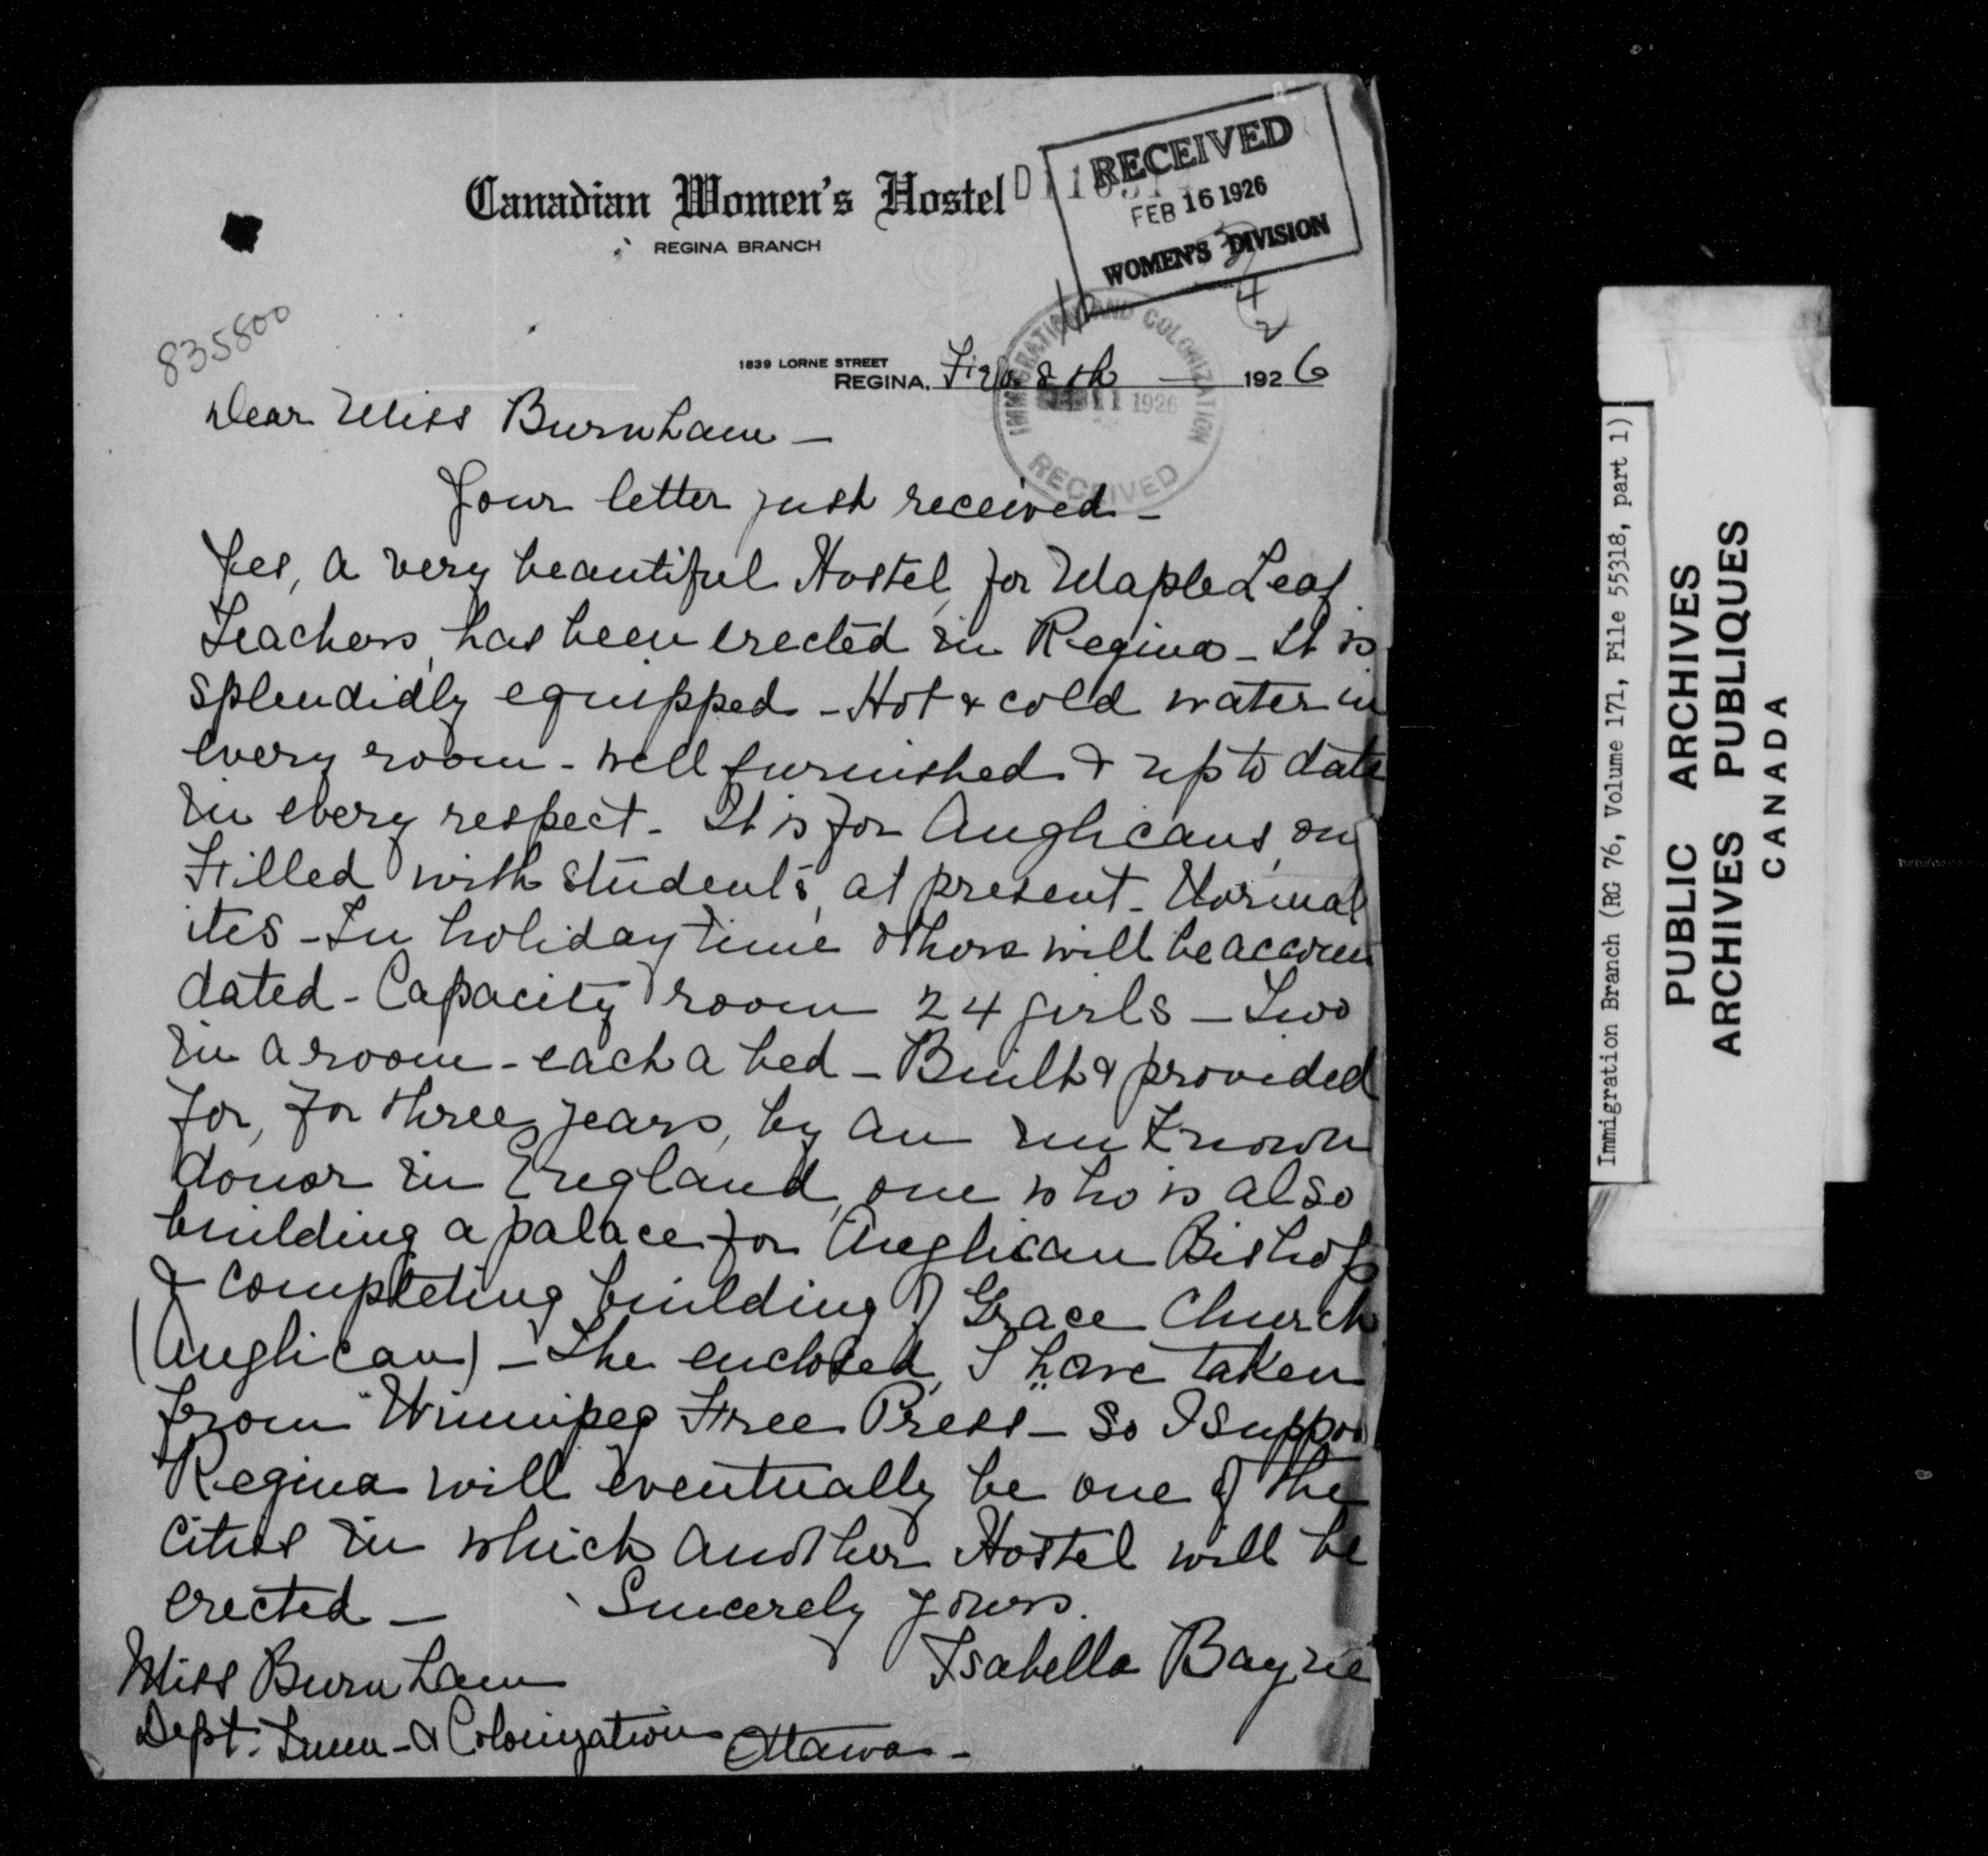 Canadian Women's Hostel
REGINA BRANCH
RECEIVED
FEB 16 1926
WOMEN'S DIVISION
835800
IMMIGRATION AND COLONIZATION
11 1926
RECEIVED
1839 LORNE STREET
REGINA, 8th — 1926
Dear Miss Burnham —
Your letter just received —
Yes, a very beautiful Hostel, for Maple Leaf
Teachers, has been erected in Regina — It is
splendidly equipped — Hot & cold water in
every room — well furnished & up to date
in every respect. It is for Anglicans, on
Filled with students, at present — Normal
ites — In holiday time others will be accom
dated — Capacity room 24 girls — Two
in a room — each a bed — Built & provided
for, for three years, by an unknown
donor in England, one who is also
building a palace for Anglican Bishop
& completing building of Grace Church
(Anglican) — The enclosed, I have taken
from Winnipeg Free Press — So I suppo
Regina will eventually be one of the
cities in which another Hostel will be
erected —
Sincerely yours.
Isabella Bayne
Miss Burnham
Dept: Imm — & Colonization Ottawa —
Immigration Branch (RG 76, Volume 171, File 55318, part 1)
PUBLIC ARCHIVES
ARCHIVES PUBLIQUES
CANADA